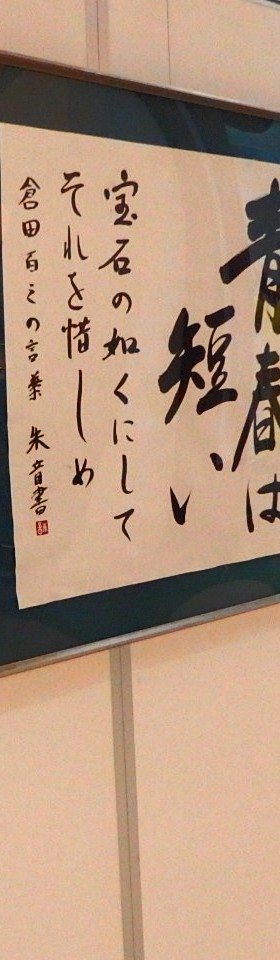 青春は
短い
宝石の如くにして
それを惜しめ
倉田百三の言葉 朱音書